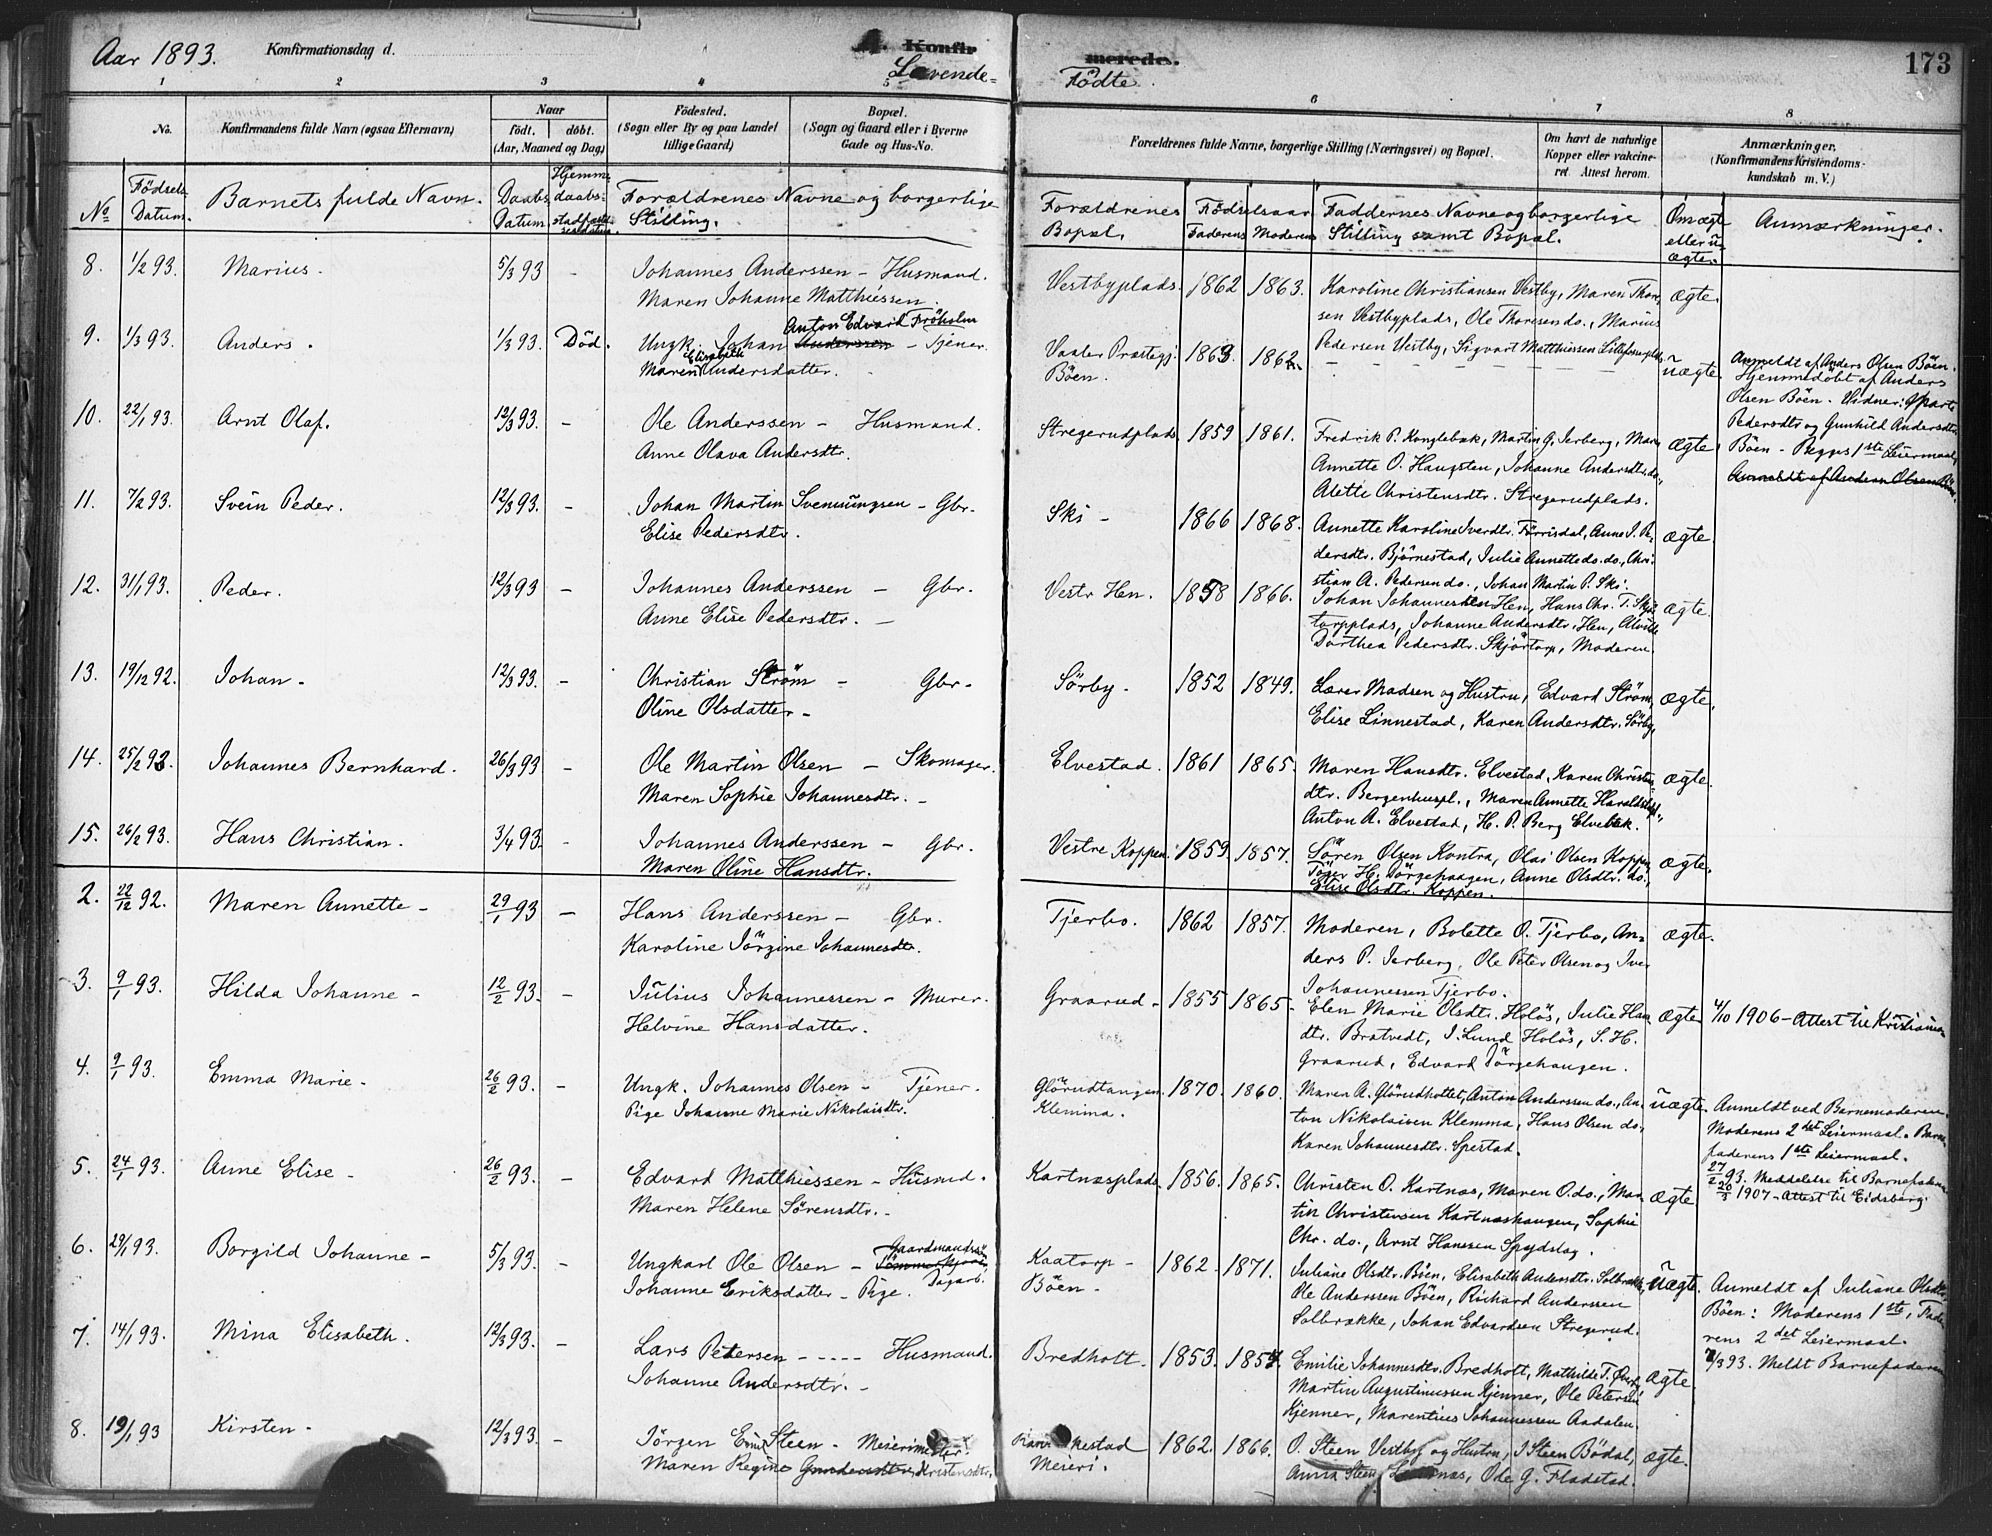 Aar 1893. Konfirmationsdag d. A. Konfirmerede. 173
Levende= Fødte
1 2 3 4 5 6 7 8
No. Konfirmandens fulde Navn (ogsaa Efternavn)
Naar
født. døbt.
(Aar, Maaned og Dag)
Födested.
(Sogn eller By og paa Landet
tillige Gaard)
Bopæl.
(Sogn og Gaard eller i Byerne
Gade og Hus-No.
Forældrenes fulde Navne, borgerlige Stilling (Næringsvei) og Bopæl.
Om havt de naturlige
Kopper eller vakcine-
ret. Attest herom.
Anmærkninger,
(Konfirmandens Kristendoms-
kundskab m. V.)
No Fødsels Datum. Barnets fulde Navn. Daabs Datum Hjemme daabs- Forældrenes Navne og borgerlige Stilling.
Forældrenes Bopæl. Fødselsaar Faderens Moderens Faddernes Navne og borgerlige Stilling samt Bopæl. Om ægte eller uægte. Anmærkninger.
8. 1/2 93. Marius. 5/3 93 - Johannes Anderssen - Husmand.
Maren Johanne Matthiessen.
Vestbyplads. 1862 1863. Karoline Christiansen Vestby, Maren Thore-
sen Vestbyplads, Ole Thoresen do., Marius
Pedersen Vestby, Sigvart Matthiessen
ægte.
9. 1/3 93. Anders. 1/3 93. Død. Ungk. Johan Anderssen Anton Edvard Frøholm - Tjener.
Maren Elisabeth Andersdatter.
Vaaler Præstegj. Böen. 1863. 1862. uægte.
Anmeldt af Anders Olsen Böen.
Hjemmedøbt af Anders
Olsen Böen. Vidner:
Pedersdtr og Gunhild Andersdtr.
Böen - Piges 1ste Leiermaal.
Anmeldt af Anders Olsen Böen.
10. 22/1 93. Arnt Olaf. 12/3 93 - Ole Anderssen - Husmand.
Anne Olava Andersdtr.
Stregerudplads 1859 1861. Fredrik P. Konglebæk, Martin G. Jerberg, Mar-
Annette O. Haugsten, Johanne Andersdtr. do.,
Alette Christensdtr. Stregerudplads.
ægte
11. 7/2 93. Svein Peder. 12/3 93. - Johan Martin Svennungsen - Gbr.
Elise Pedersdtr.
Ski - 1866 1868. Annette Karoline Iverdtr. Førrisdal, Anne I. Pe-
dersdtr. Bjørnestad, Julie Annette do. do., Chri-
stian A. Pedersen do., Johan Martin P. Ski.
ægte
12. 31/1 93. Peder. 12/3 93 - Johannes Anderssen - Gbr.
Anne Elise Pedersdtr. -
Vestr Hen. 1858 1866. Johan Johannessen Hen, Hans Chr. T. Skjør-
torpplads, Johanne Andersdtr. Hen, Alvilde
Dorthea Pedersdtr. Skjørtorp, Moderen.
ægte.
13. 19/12 92. Johan. 12/3 93. - Christian Strøm - Gbr.
Oline Olsdatter -
Sørby. 1852 1849. Lærer Madsen og Hustru, Edvard Strøm,
Elise Linnestad, Karen Andersdtr. Sørby,
ægte.
14. 25/2 93. Johannes Bernhard. 26/3 93 - Ole Martin Olsen - Skomager.
Maren Sophie Johannesdtr. -
Elvestad. 1861 1865. Maren Hansdtr. Elvestad, Karen Christens
dtr. Bergenhuspl., Maren Annette
Anton A. Elvestad, H. P. Berg Elvebak.
ægte.
15. 26/2 93. Hans Christian. 3/4 93. - Johannes Anderssen - Gbr.
Maren Oline Hansdtr.
Vestre Koppen. 1859. 1857. Søren Olsen Kontra, Olai Olsen Koppen,
H. Pørgehaugen, Anne Olsdtr. do.,
Elise Olsdtr. Koppen.
ægte.
2. 22/12 92. Maren Annette - 29/1 93 - Hans Anderssen - Gbr.
Karoline Jørgine Johannesdtr.
Tjerbo. 1862 1857. Moderen, Bolette O. Tjerbo, An-
ders P. Jerberg, Ole Peter Olsen og Iver
Johannessen Tjerbo.
ægte.
3. 9/1 93. Hilda Johanne - 12/2 93. - Julius Johannessen - Murer.
Helvine Hansdatter.
Graarud - 1855 1865. Elen Marie Olsdtr. Holøs, Julie Han-
dtr. Bratvedt, I. Lund Holøs, S. H.
Graarud, Edvard Pørgehaugen.
ægte 4/10 1906 - Attest til Kristiania
4. 9/1 93. Emma Marie - 26/2 93. - Ungk. Johannes Olsen - Tjener.
Pige Johanne Marie Nikolaisdtr.
Glørudtangen Klemma. 1870. 1860. Maren A. Glørudholtet, Anton Anderssen do., An-
ton Nikolaisen Klemma, Hans Olsen do.,
Karen Johannesdtr. Spestad.
uægte. Anmeldt ved Barnemoderen.
Moderens 2det Leiermaal. Barne-
faderens 1ste Leiermaal.
27/2 93. Meddelelse til Barnefaderen
5. 24/1 93. Anne Elise - 26/2 93. - Edvard Matthiessen - Husmd.
Maren Helene Sørensdtr. -
Kartnæsplads 1856. 1865. Christen O. Kartnæs, Maren O. do., Mar-
tin Christensen Kartnæshaugen, Sophie
Chr. do., Arnt Hanssen Spydslag.
ægte 20/3 1907 - Attest til Eidsberg.
6. 29/1 93. Borgild Johanne - 5/3 93. - Ungkarl Ole Olsen - Gaardmandssøn Dagarb.
Johanne Eriksdatter - Pige.
Kaatorp - Böen - 1862. 1871. Juliane Olsdtr. Böen, Elisabeth Andersdtr. Solbrække,
Ole Anderssen Böen, Richard Anderssen
Solbrække, Johan Edvardsen Stregerud.
uægte. Anmeldt af Juliane Olsdtr.
Böen: Moderens 1ste, Fade-
rens 2det Leiermaal.
7/3 93. Meldt Barnefaderen
7. 14/1 93. Mina Elisabeth. 12/3 93. - Lars Petersen - - - - Husmand.
Johanne Andersdtr. -
Bredholt. 1853. 1857. Emilie Johannesdtr. Bredholt, Mathilde T.
Martin Augustinussen Kjenner, Ole Petersen
Kjenner, Marentius Johannessen Aadalen.
ægte.
8. 19/1 93 Kirsten - 12/3 93. - Jørgen Emil Steen - Meierimester.
Maren Regine Gundersdtr. Kristensdtr.
Meieri. 1862. 1866. O. Steen Vestby og Hustru, I Steen Bødal,
Anna Steen Ode G. Fladstad.
ægte.